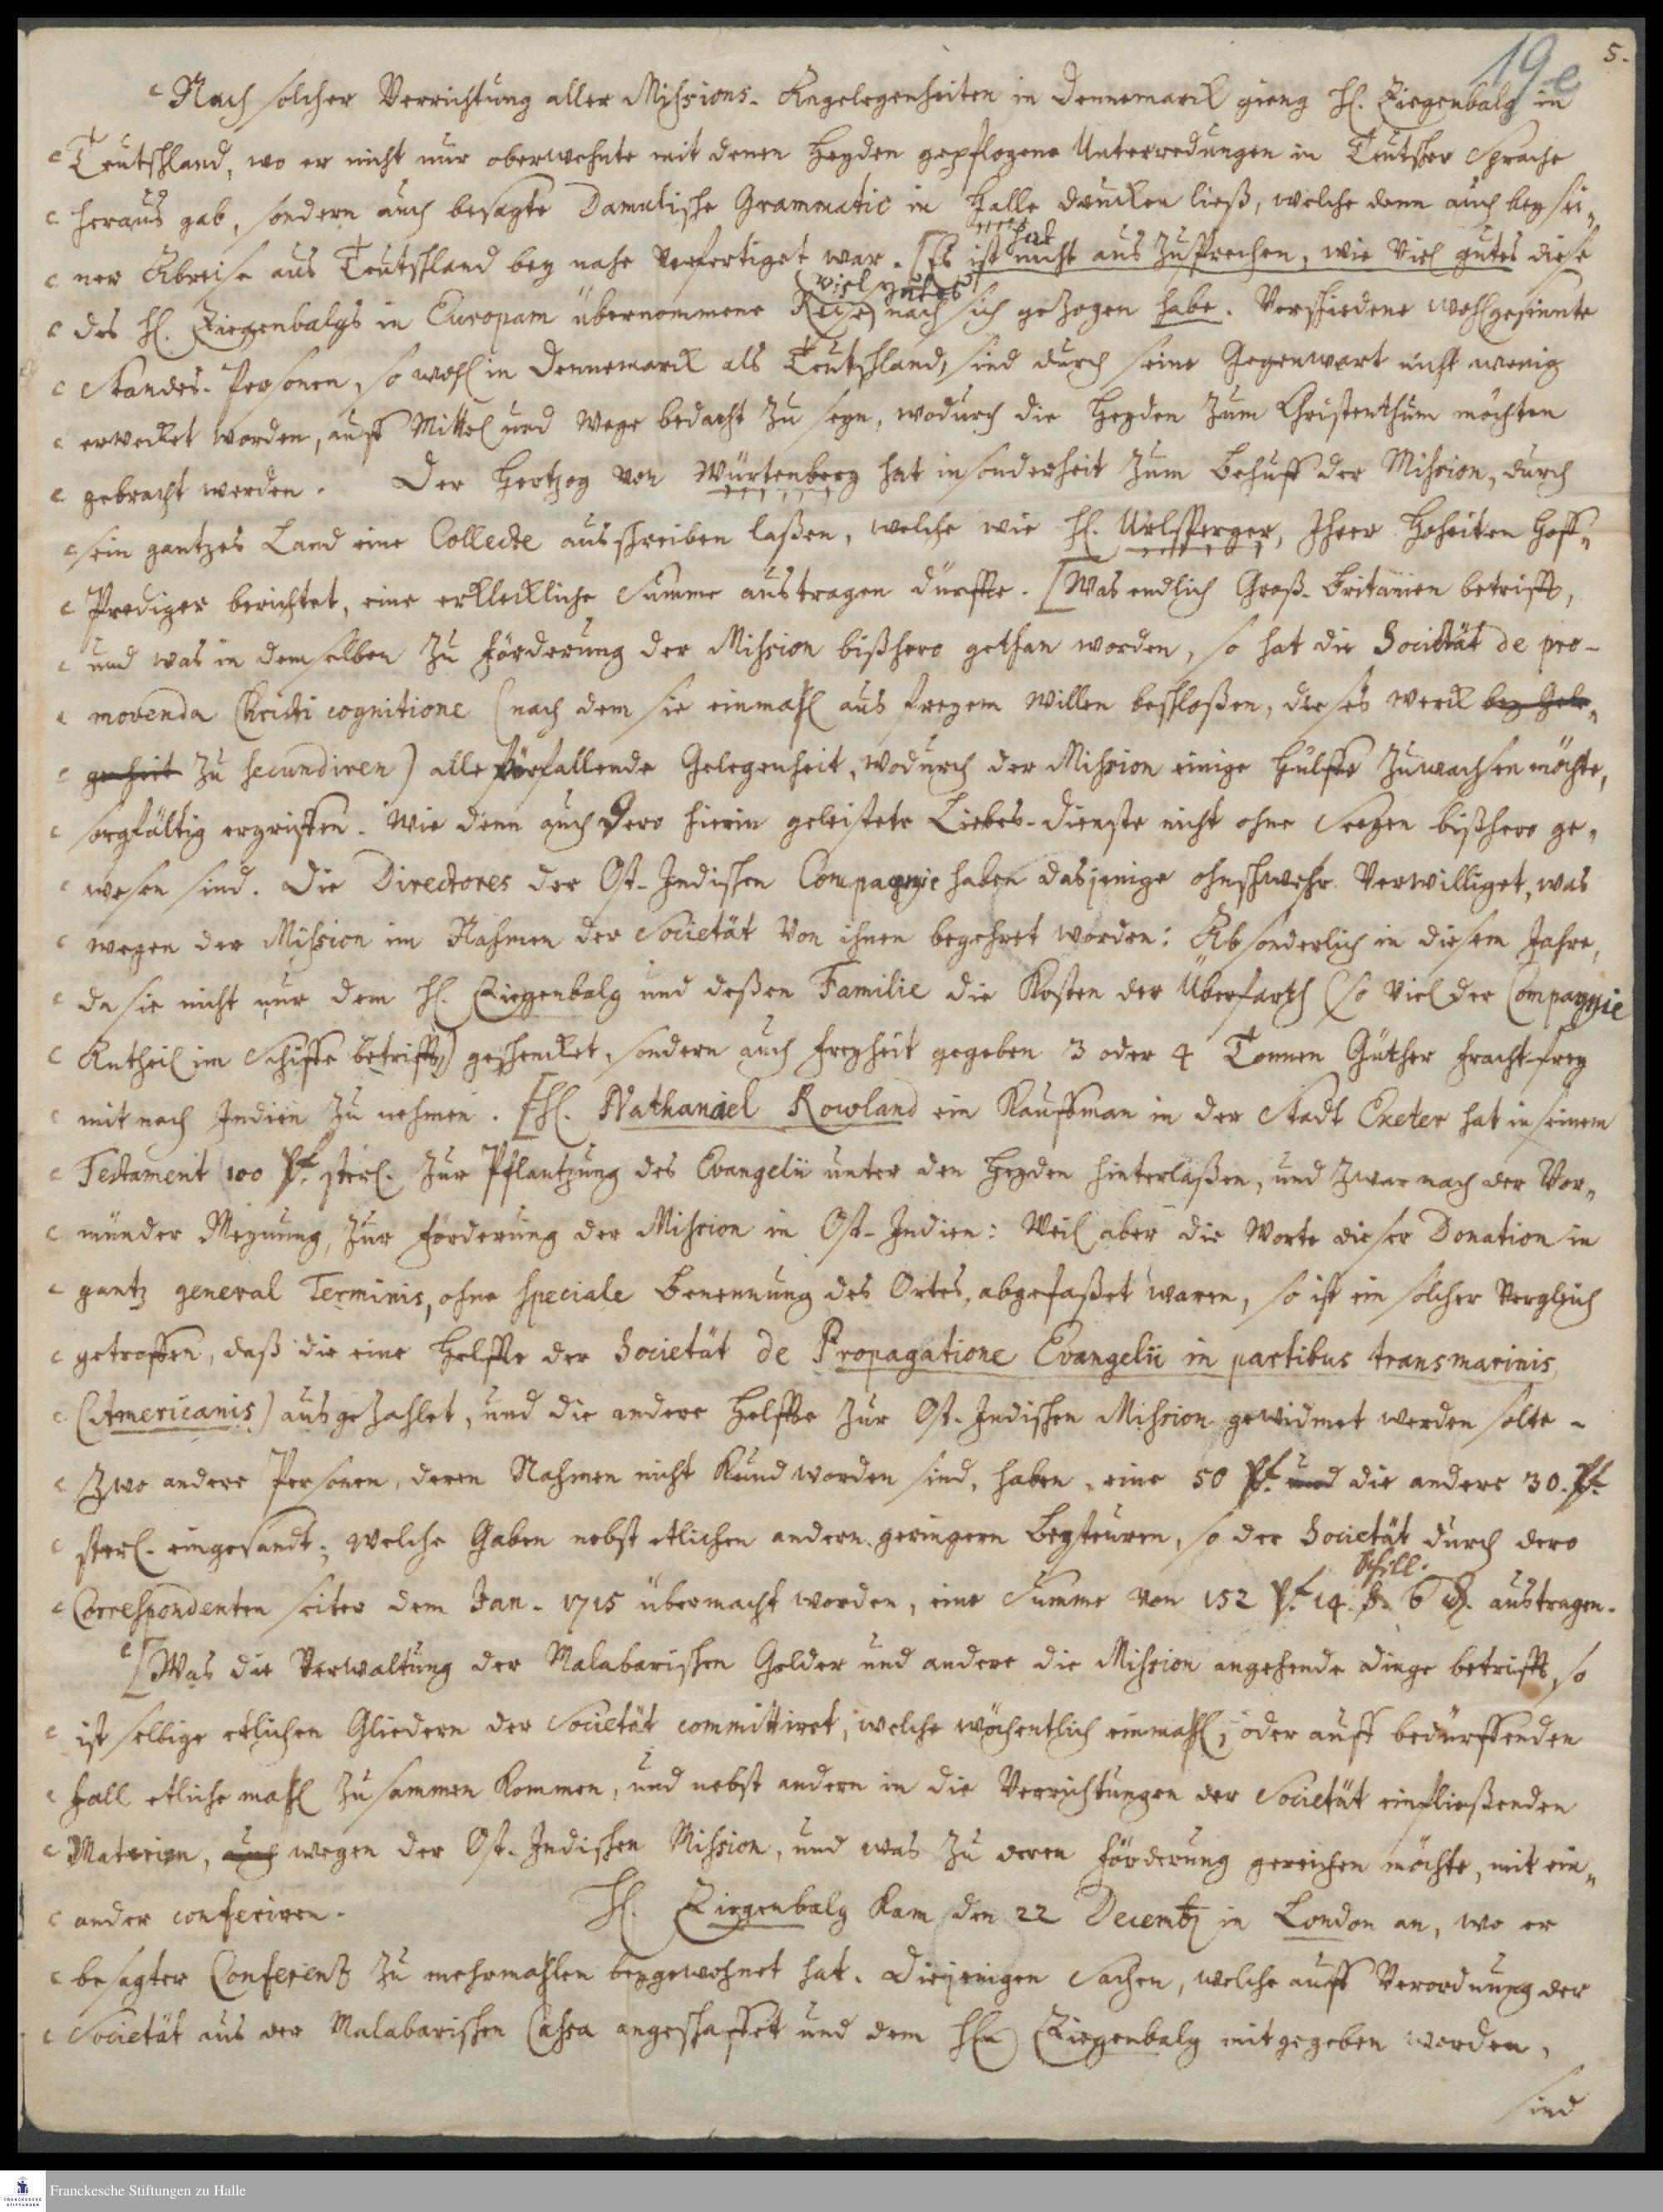 19e
5.
Nach solcher Verrichtung aller Missions-Angelegenheiten in Dennemarck gieng H. Ziegenbalg in
Teutschland, wo er nicht nur oberwehnte mit denen Heyden gepflogene Unterredungen in Teutscher Sprache
heraus gab, sondern auch besagte Damulische Grammatic in Halle drucken ließ, welche denn auch bey sei„
ner Abreise aus Teutschland bey nahe verfertiget war. [Es ist nicht aus zusprechen, wie viel gutes diese
hat
viel gutes
des H. Ziegenbalgs in Europam übernommene Reise nach sich gezogen habe. Verschiedene wohlgesinnte
Standes-Personen, so wohl in Dennemarck als Teutschland, sind durch seine Gegenwart nicht wenig
erwecket worden, auff Mittel und Wege bedacht zu seyn, wodurch die Heyden zum Christenthum möchten
gebracht werden. Der Hertzog von Würtenberg hat insonderheit zum Behuff der Mission, durch
sein gantzes Land eine Collecte ausschreiben laßen, welche wie H. Urlsperger, Ihrer Hoheiten Hoff„
Prediger berichtet, eine erkleckliche Summe austragen dürffte. [Was endlich Groß-Britanien betrifft,
und was in demselben zu Förderung der Mission bißhero gethan worden, so hat die Societät de pro-
movenda Christi cognitione (nach dem sie einmahl aus freyem Willen beschloßen, dieses Werck bey Gele„
genheit zu secundiren) alle fürfallende Gelegenheit, wodurch der Mission einige Hülffe zuwachsen möchte,
sorgfältig ergriffen. Wie denn auch Dero hierin geleistete Liebes-Dienste nicht ohne Seegen bißhero ge„
wesen sind. Die Directores der Ost-Indischen Compagnie haben dasjenige ohnschwehr verwilliget, was
wegen der Mission im Nahmen der Societät von ihnen begehret worden: Absonderlich in diesem Jahre,
da sie nicht nur dem H. Ziegenbalg und deßen Familie die Kosten der Überfarth (so viel der Compagnie
Antheil im Schiffe betrifft) geschencket, sondern auch Freyheit gegeben 3 oder 4 Tonnen Güther Fracht-frey
mit nach Indien zu nehmen. [H. Nathanael Rowland ein Kauffman in der Stadt Exeter hat in seinem
Testament 100 Pf. sterl. zur Pflantzung des Evangelii unter den Heyden hinterlaßen, und zwar nach der Vor„
münder Meynung, zur Förderung der Mission in Ost-Indien: Weil aber die Worte dieser Donation in
gantz general Terminis, ohne speciale Benennung des Ortes, abgefaßet waren, so ist ein solcher Vergleich
getroffen, daß die eine Helffte der Societät de Propagatione Evangelii in partibus transmarinis,
(Americanis) ausgezahlet, und die andere Helffte zur Ost-Indischen Mission gewidmet werden solte.
Zwo andere Personen, deren Nahmen nicht kund worden sind, haben, eine 50 Pf. und die andere 30. Pf.
sterl. eingesandt; welche Gaben nebst etlichen andern geringern Beysteuren, so der Societät durch dero
schill.
Correspondenten seiter dem Jan. 1715 übermacht worden, eine Summe von 152 Pf. 14. ß. 6 d. austragen.
[Was die Verwaltung der Malabarischen Gelder und andere die Mission angehende Dinge betrifft, so
ist selbige etlichen Gliedern der Societät committiret, welche wöchentlich einmahl, oder auff bedürffenden
Fall etliche mahl zusammen kommen, und nebst andern in die Verrichtungen der Societät einfließenden
Materien, auch wegen der Ost-Indischen Mission, und was zu deren Förderung gereichen möchte, mit ein„
ander conferiren. H. Ziegenbalg kam den 22 Decemb. in London an, wo er
besagter Conferentz zu mehrmahlen beygewohnet hat. Diejenigen Sachen, welche auff Verordnung der
Societät aus der Malabarischen Cassa angeschaffet und dem Hn. Ziegenbalg mitgegeben worden,
sind
FRANCKESCHE STIFTUNGEN
Franckesche Stiftungen zu Halle